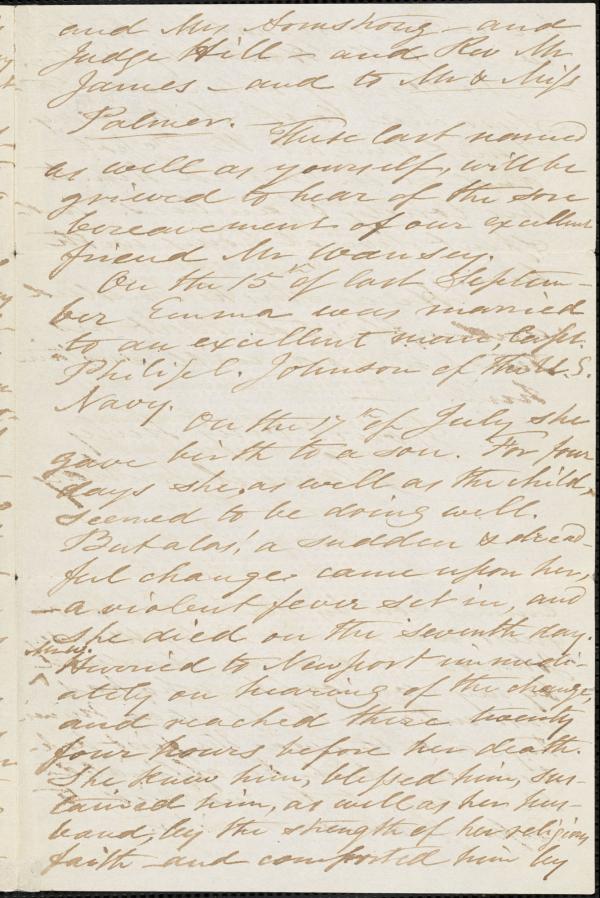 and Mrs Armstrong - and
Judge Hill - and Rev Mr
James - and to Mr & Miss
Palmer. - These last named
as well as yourself, will be
grieved to hear of the sore
bereavement of our excellent
friend Mr Wansey.
On the 15th of last Septem-
ber Emma was married
to an excellent man Capt.
Philip C. Johnson of the U.S.
Navy.
On the 17th of July she
gave birth to a son. For four
days she, as well as the child,
seemed to be doing well.
But alas! a sudden & dread-
ful change came upon her,
- a violent fever set in, and
she died on the seventh day.
Mr W.
Hurried to Newport immedi-
ately on hearing of the change,
and reached there twenty
four hours before her death.
She knew him, blessed him, sus-
tained him, as well as her hus-
band, by the strength of her religious
faith - and comforted him by